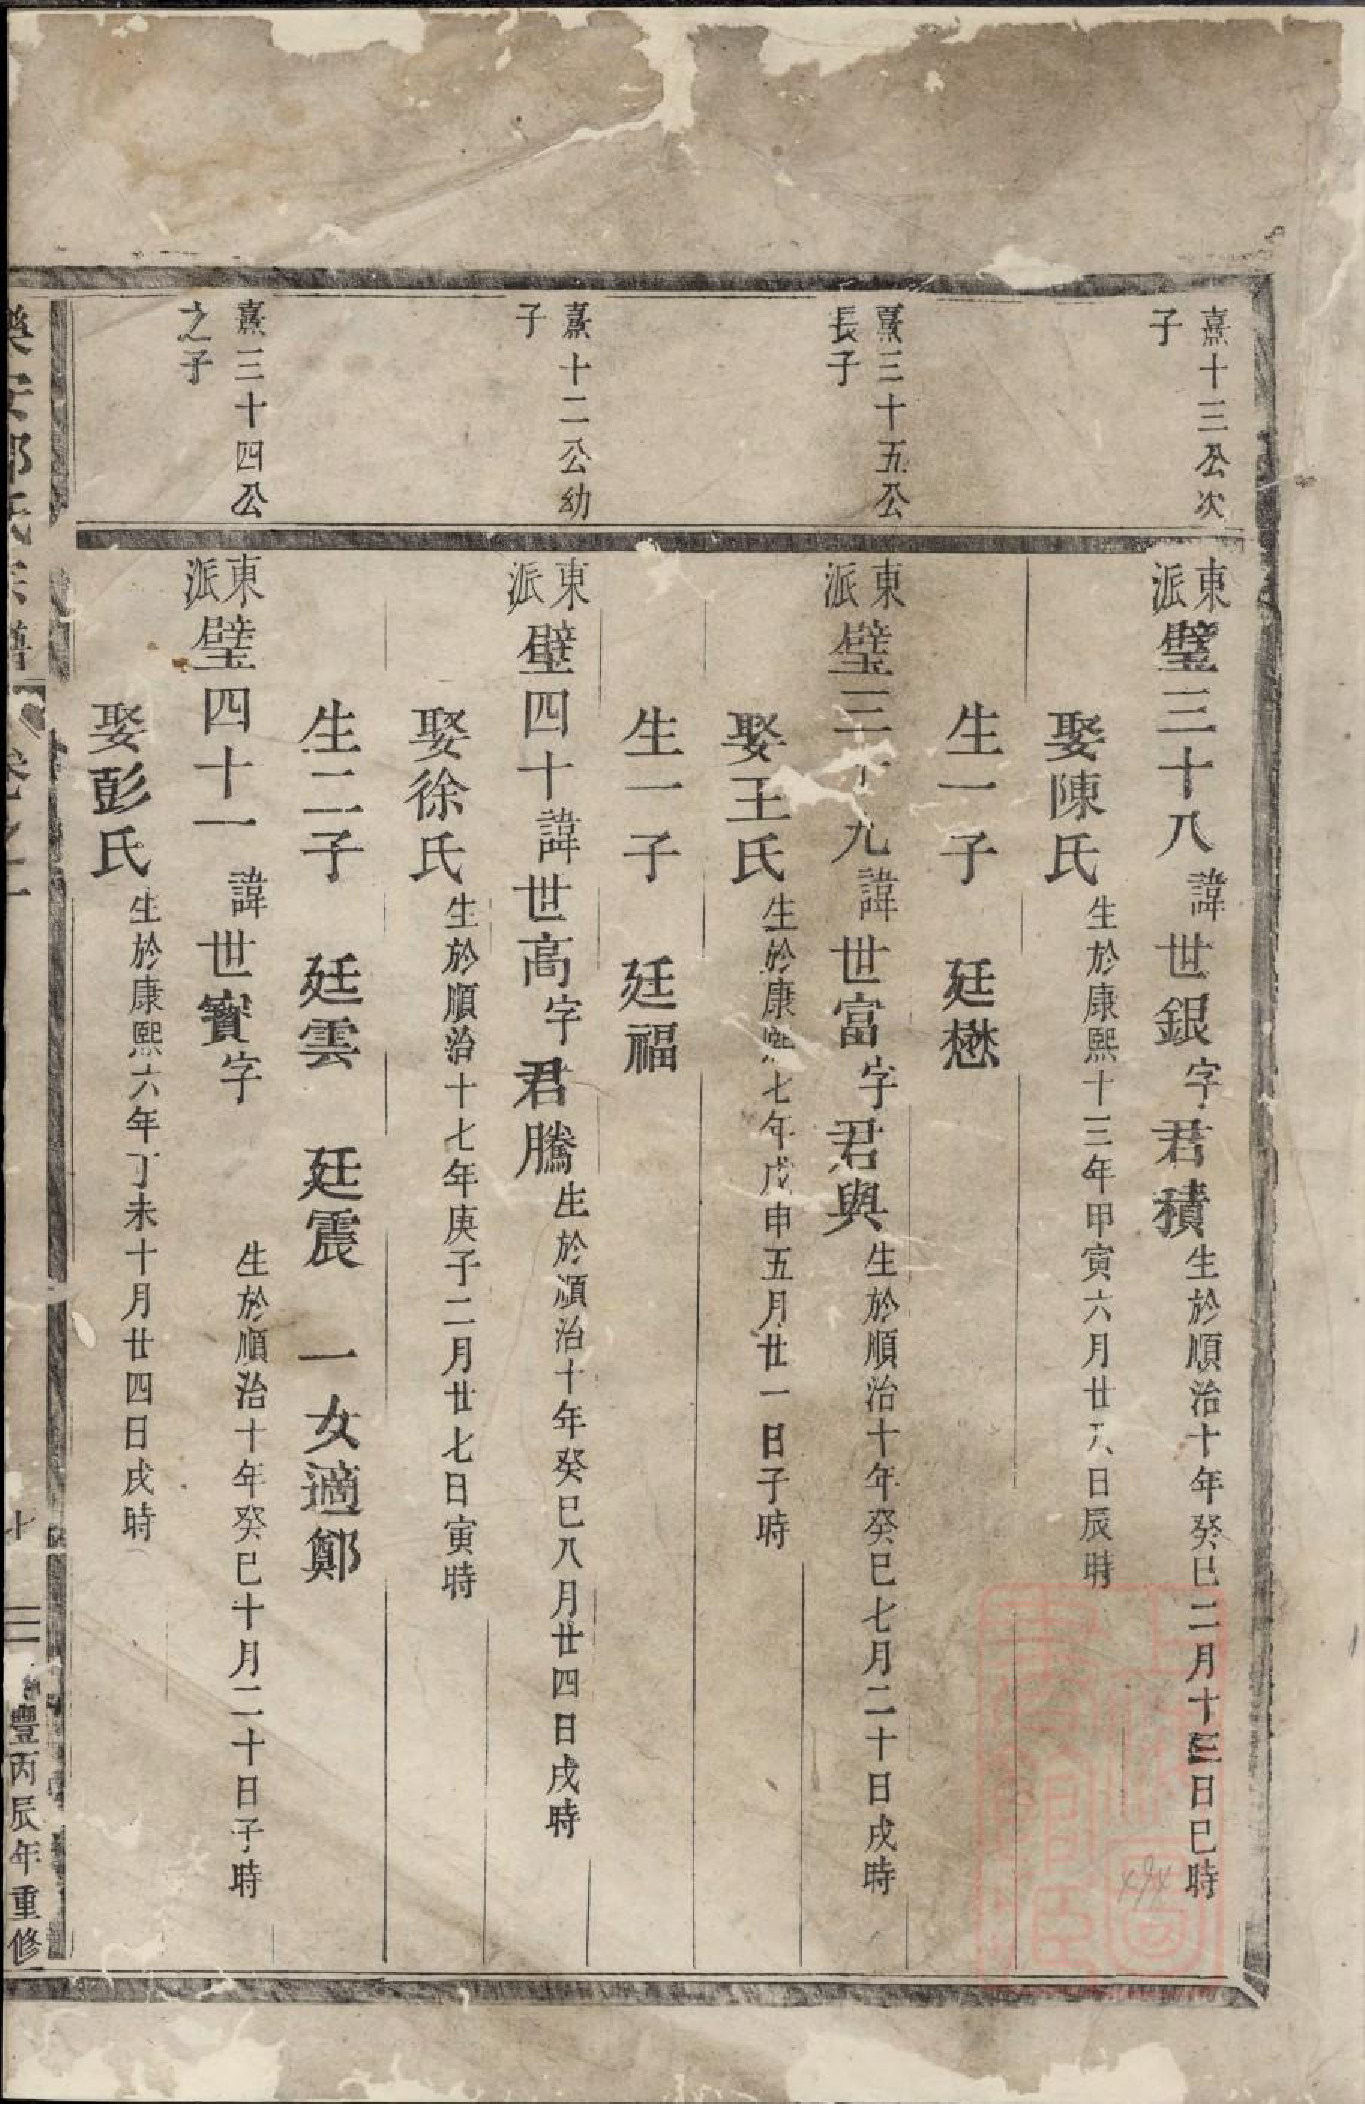 熹十三公次
子
東派璧三十八諱世銀字君積生於順治十年癸巳二月十三日巳時
娶陳氏生於康熙十三年甲寅六月廿八日辰時
生一子 廷懋
熹三十五公
長子
東派璧三十九諱世富字君與生於順治十年癸巳七月二十日戌時
娶王氏生於康熙七年戊申五月廿一日子時
生一子 廷福
熹十二公幼
子
東派璧四十諱世高字君騰生於順治十年癸巳八月廿四日戌時
娶徐氏生於順治十七年庚子二月廿七日寅時
生二子 廷雲 廷震 一女適鄭
熹三十四公
之子
東派璧四十一 諱世寶字 生於順治十年癸巳十月二十日子時
娶彭氏生於康熙六年丁未十月廿四日戌時
豐丙辰年重修